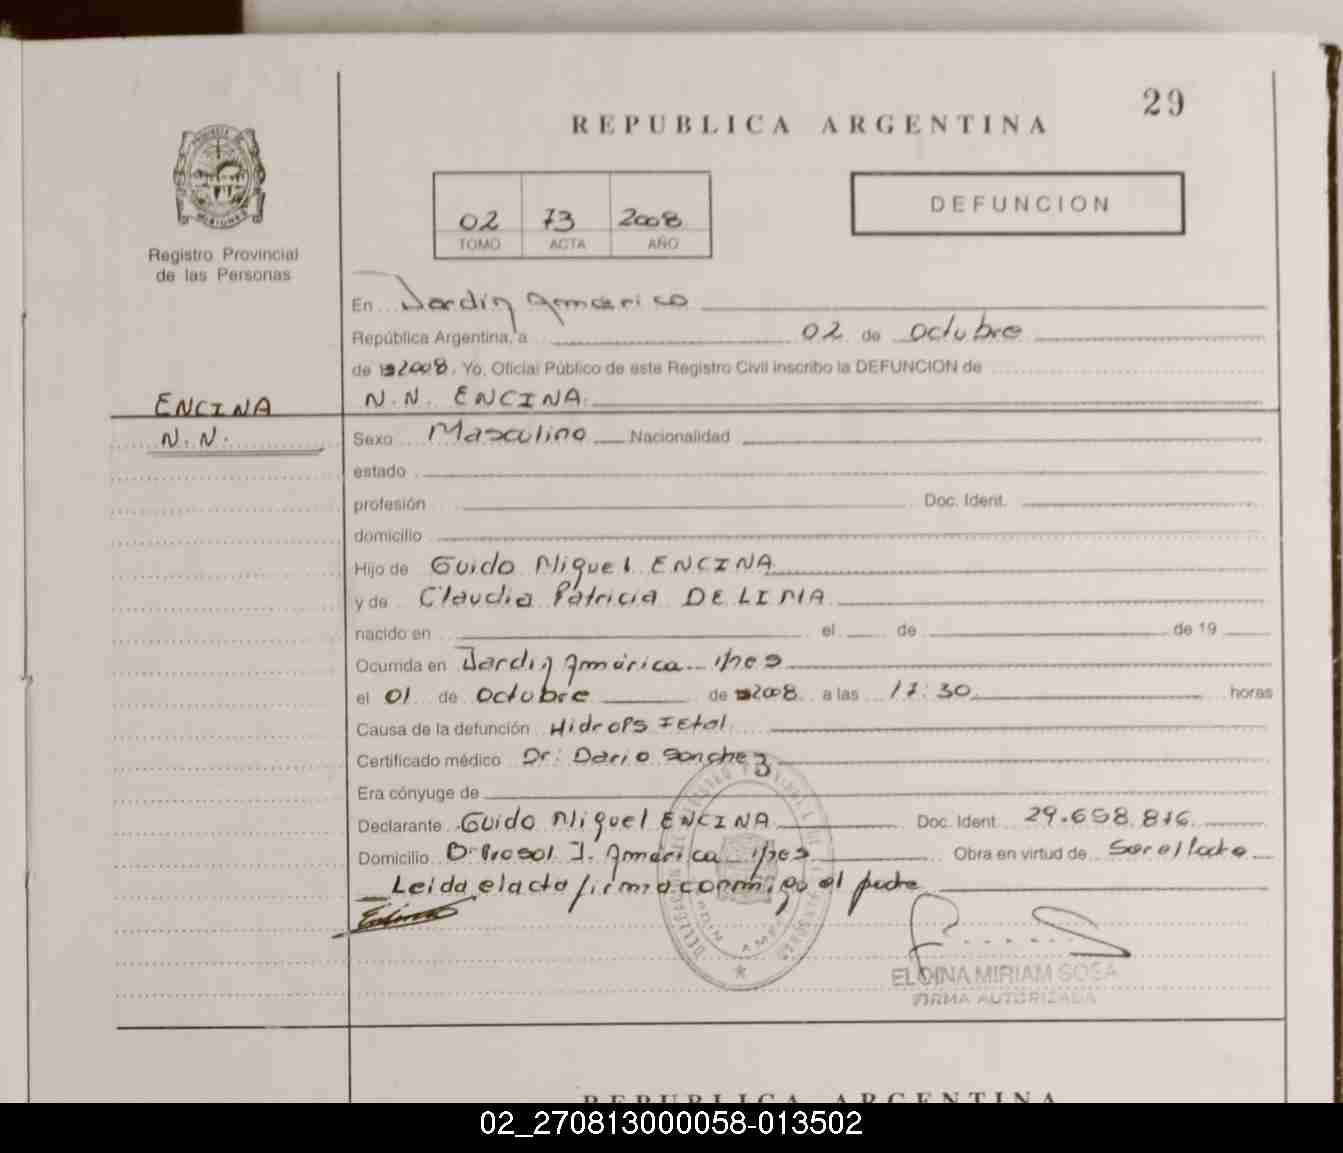 29
REPUBLICA ARGENTINA
DEFUNCION
02 73 2008
TOMO ACTA AÑO
Registro Provincial
de las Personas
En Jardín América
República Argentina, a 02 de Octubre
de 2008. Yo, Oficial Público de este Registro Civil inscribo la DEFUNCION de
N.N. ENCINA
ENCINA
N.N.
Sexo Masculino Nacionalidad
estado
profesión Doc. Ident.
domicilio
Hijo de Guido Miguel ENCINA
y de Claudia Patricia DE LIMA
nacido en el de de 19
Ocurrida en Jardín América Mnes
el 01 de Octubre de 2008 a las 17:30 horas
Causa de la defunción Hidrops Fetal
Certificado médico Dr: Dario Sanchez
Era cónyuge de
Declarante Guido Miguel ENCINA Doc. Ident. 29.658.816
Domicilio J. América Mnes Obra en virtud de
Leida el acta firma conmigo el padre
ELOINA MIRIAM SOSA
FIRMA AUTORIZADA
REPUBLICA ARGENTINA
02_270813000058-013502